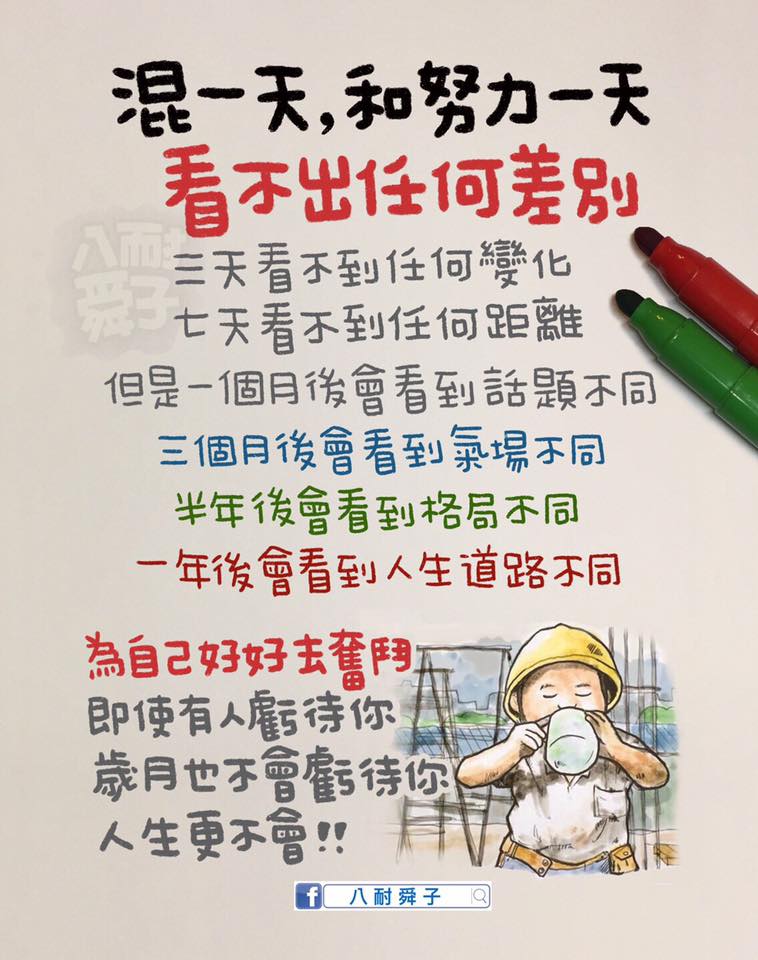 混一天,和努力一天
看不出任何差別
八耐
舜子
三天看不到任何變化
七天看不到任何距離
但是一個月後會看到話題不同
三個月後會看到氣場不同
半年後會看到格局不同
一年後會看到人生道路不同
為自己好好去奮鬥
即使有人虧待你
歲月也不會虧待你
人生更不會!!
f 八耐舜子